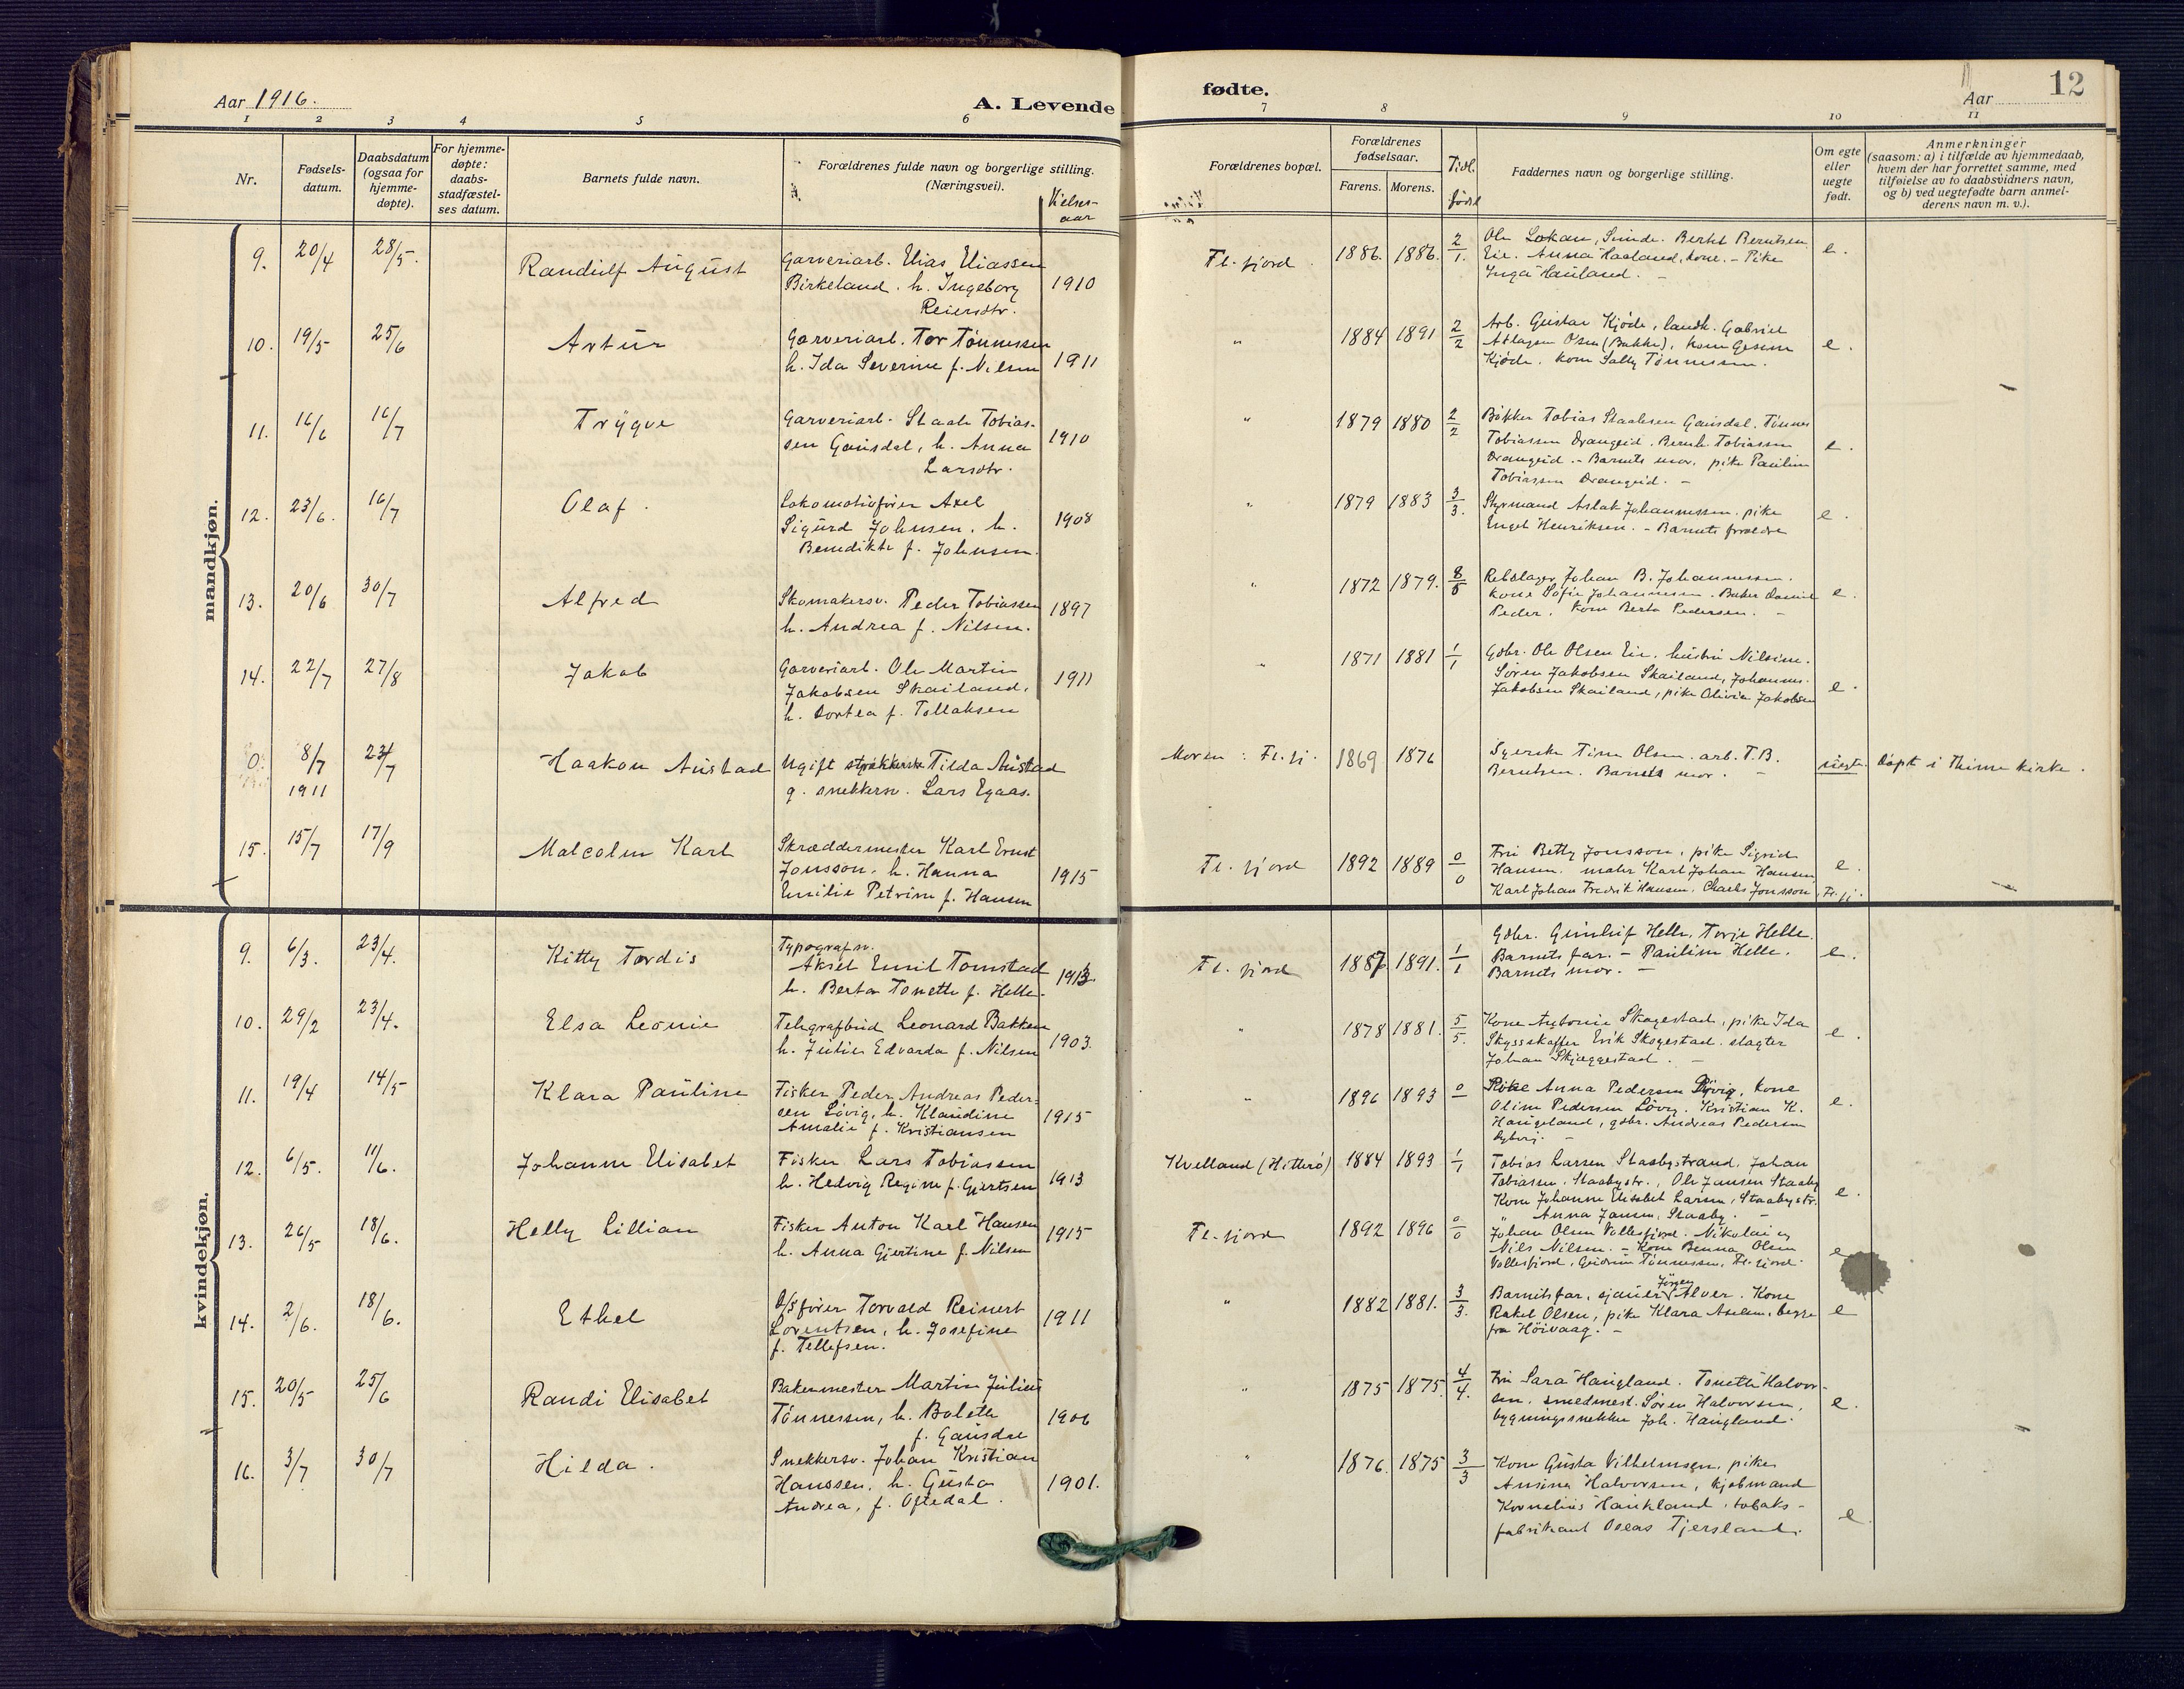 Aar 1916.
A. Levende
fødte.
Aar
12
1 2 3 4 5 6
7 8 9 10 11
Nr.
Fødsels-
datum.
Daabsdatum
(ogsaa for
hjemme-
døpte).
For hjemme-
døpte:
daabs-
stadfæstel-
ses datum.
Barnets fulde navn.
Forældrenes fulde navn og borgerlige stilling.
(Næringsvei).
Vielses-
aar
Forældrenes bopæl.
Forældrenes
fødselsaar.
Farens. Morens.
Tidl.
født
Faddernes navn og borgerlige stilling.
Om egte
eller
uegte
født.
Anmerkninger
(saasom: a) i tilfælde av hjemmedaab,
hvem der har forrettet samme, med
tilføielse av to daabsvidners navn,
og b) ved uegtefødte barn anmel-
derens navn m. v.).
mandkjøn.
9. 20/4 28/5. Randulf August
Garveriarb. Elias Eliassen
Birkeland. h. Ingeborg
Reiersdtr.
1910
Fl. fjord. 1886. 1886. 2/1.
Ole Lokan, Sunde. Bertel Berntsen
Eie. Anna Haaland, kone. - Pike
Inga Hauland. -
e.
10. 19/5 25/6 Artur
Garveriarb. Tor Tønnessen
h. Ida Severine f. Nilsen
1911
" 1884 1891 2/2
Arb. Gustav Kjøde, landh. Gabriel
Atlagsen Osen (Bakke), kone Gesine
Kjøde. kone Sally Tønnessen.
e.
11. 16/6 16/7 Trygve
Garveriarb. Staale Tobias-
sen Gausdal, h. Anna
Larsdtr.
1910
" 1879 1880 2/2
Bøkker Tobias Staalesen Gausdal. Tønnes
Tobiassen Drangeid. Bernh. Tobiassen
Drangeid. - Barnets mor, pike Pauline
Tobiassen Drangeid. -
e.
12. 23/6. 16/7 Olaf.
Lokomotivfører Axel
Sigurd Johnsen. h.
Benedikte f. Johnsen.
1908
" 1879 1883 3/3.
Styrmand Aslak Johannessen. pike
Engel Henriksen. - Barnets forældre
e.
13. 20/6 30/7 Alfred
Skomakersv. Peder Tobiassen
h. Andrea f. Nilsen.
1897
" 1872 1879. 8/8
Rebslager Johan B. Johannessen.
kone Sofie Johannessen. Baker Daniel
Peder. Kone Berta Pedersen. -
e.
14. 22/7 27/8 Jakob
Garveriarb. Ole Martin
Jakobsen Skailand,
h. Dortea f. Tollaksen
1911
" 1871 1881 1/1
Gdbr. Ole Olsen Eie. hustru Nilsine.
Søren Jakobsen Skailand, Johannes
Jakobsen Skailand, pike Olivia Jakobsen
e.
0. 8/7 1911 23/7 Haakon Austad
Ugift strykerske Tilda Austad
g. snekkersv. Lars Egaas.
Moren: Fl. fj. 1869 1876
Syerske Tine Olsen. arb. T.B.
Berntsen. Barnets mor. -
uegte. Døpt i Thime kirke.
15. 15/7 17/9 Malcolm Karl
Skræddermester Karl Ernst
Jonsson. h. Hanna
Emilie Petrine f. Hansen
1915
Fl. fjord 1892 1889 0/0
Fru Betty Jonsson, pike Sigrid
Hansen. Karl Johan Hansen
Karl Johan Fredrik Hansen. Charls Jonsson, Fl. fj.
e.
kvindekjøn.
9. 6/3. 23/4. Kitty Tordis
Typografsv.
Aksel Emil Tomstad
h. Berta Tonette f. Helle.
1913
Fl. fjord 1887. 1891. 1/1
Gdbr. Gunleif Helle, Torje Helle.
Barnets far. - Pauline Helle.
Barnets mor. -
e.
10. 29/2 23/4. Elsa Leonie
Telegrafbud Leonard Bakken
h. Julie Edvarda f. Nilsen
1903.
" 1878 1881. 5/5.
Kone Antonie Skogestad, pike Ida
Skyssskaffer Erik Skogestad. slagter
Johan Skjæggestad. -
e.
11. 19/4 14/5 Klara Pauline
Fisker Peder Andreas Peder-
sen Løvig. h. Klaudine
Amalie f. Kristiansen
1915
" 1896 1893 0
Pike Anna Pedersen Løvig, kone
Oline Pedersen Løvig. Kristian K.
Haugeland, gdbr. Andreas Pedersen
e.
12. 6/5. 11/6. Johanne Elisabet
Fisker Lars Tobiassen
h. Hedvig Regine f. Gjertsen
1913
Kvelland (Hitterø) 1884 1893 1/1
Tobias Larsen Staabystrand, Johan
Tobiassen. Staabystr., Ole Jansen Staaby
Kone Johanne Elisabet Larsen, Staabystr.
" Anna Jansen, Staaby. -
e.
13. 26/5 18/6. Helly Lillian
Fisker Anton Karl Hansen
h. Anna Gjertine f. Nilsen
1915
Fl. fjord 1892 1896 0/0
Johan Olsen Vollesfjord. Nikolai og
Nils Nilsen. - Kone Benna Olsen
Vollesfjord, Gudrun Tønnessen, Fl. fjord.
e
14. 2/6. 18/6. Ethel
D/S fører Torvald Reinert
Lorentsen, h. Josefine
f. Tellefsen.
1911
" 1882 1881. 3/3.
Barnets far, sjauer Jørgen Alver. Kone
Rakel Olsen, pike Klara Aslam. begge
fra Höivaag. -
e
15. 20/5 25/6 Randi Elisabet
Bakermester Martin Julius
Tønnessen, h. Bolette
f. Gausdal
1906
" 1875 1875. 4/4.
Fru Sara Haugland. Tonette Halvor-
sen. smedmest. Søren Halvorsen,
bygningssnekker Joh. Haugland.
e.
16. 3/7 30/7 Hilda.
Snekkersv. Johan Kristian
Hanssen. h. Gusta
Andrea, f. Oftedal.
1901.
" 1876. 1875 3/3
Kone Gusta Vilhelmsen, pike
Ansine Halvorsen, kjøbmand
Kornelius Haukland. tobaks-
fabrikant Oleas Tjersland.
e.